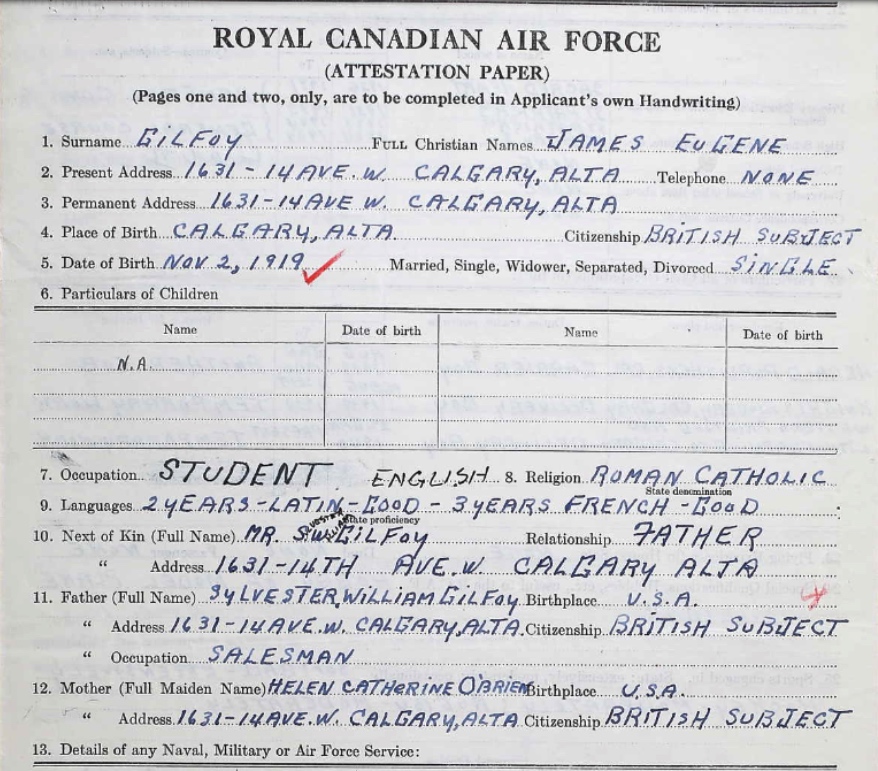 ROYAL CANADIAN AIR FORCE
(ATTESTATION PAPER)
(Pages one and two, only, are to be completed in Applicant's own Handwriting)
1. Surname GILFOY FULL Christian Names JAMES EUGENE
2. Present Address 1631-14 AVE. W. CALGARY, ALTA Telephone NONE
3. Permanent Address 1631-14 AVE W. CALGARY, ALTA
4. Place of Birth CALGARY, ALTA. Citizenship BRITISH SUBJECT
5. Date of Birth NOV 2, 1919 Married, Single, Widower, Separated, Divorced SINGLE
6. Particulars of Children
Name Date of birth Name Date of birth
N.A.
7. Occupation STUDENT ENGLISH 8. Religion ROMAN CATHOLIC
State denomination
9. Languages 2 YEARS - LATIN - GOOD - 3 YEARS FRENCH - GOOD
State proficiency
10. Next of Kin (Full Name) MR. S.W. GILFOY Relationship FATHER
" Address 1631-14TH AVE. W. CALGARY ALTA
11. Father (Full Name) SYLVESTER WILLIAM GILFOY Birthplace U.S.A.
" Address 1631-14 AVE. W. CALGARY, ALTA. Citizenship BRITISH SUBJECT
" Occupation SALESMAN
12. Mother (Full Maiden Name) HELEN CATHERINE O'BRIEN Birthplace U.S.A.
" Address 1631-14 AVE. W. CALGARY, ALTA Citizenship BRITISH SUBJECT
13. Details of any Naval, Military or Air Force Service: